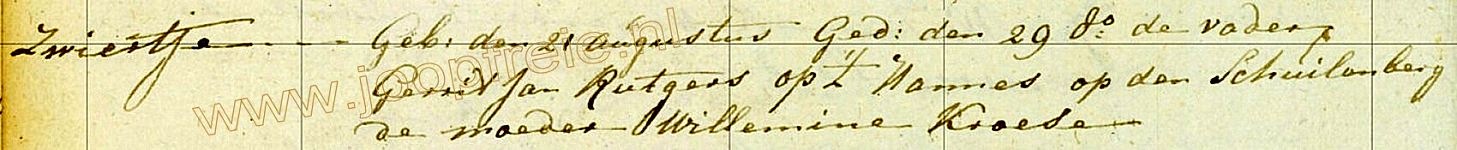 Zwiertje - - - Geb: den 21 augustus Ged: den 29 do: de vader
Gerrit Jan Rutgers op 't Hannes op den Schuilenberg
de moeder Willemine Kroese
www.jooptrele.nl